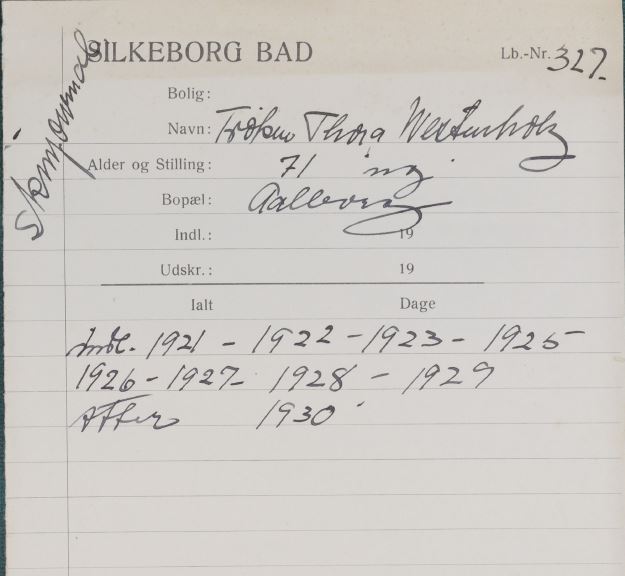 SILKEBORG BAD
Lb.-Nr. 327.
Bolig:
Navn: Frøken Thora Westenholz
Alder og Stilling: 71
Bopæl: Aalborg
Indl.: 19
Udskr.: 19
Ialt Dage
indl. 1921 - 1922 - 1923 - 1925
1926 - 1927 - 1928 - 1929
atter 1930